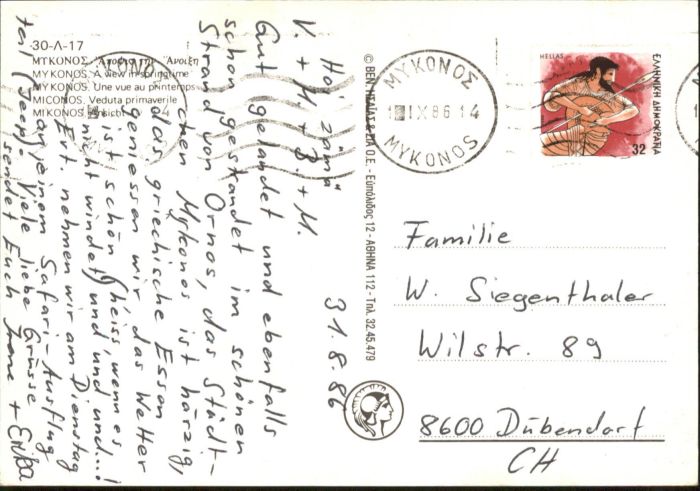 30-Λ-17
ΜΥΚΟΝΟΣ. Άποψη την Άνοιξη
MYKONOS. A view in springtime
MYKONOS. Une vue au printemps
MICONOS. Veduta primaverile
MIKONOS. Ansicht
31.8.86
Hoi "zämä"
V. + M. + B. + M.
Gut gelandet und ebenfalls
schon gestrandet im schönen
Strand von Ornos, das Städt-
chen Mykonos ist härzig,
das griechische Essen
geniessen wir, das Wetter
ist schön (heiss, wenn es
nicht windet) und und...!
Evt. nehmen wir am Dienstag
an einem Safari-Ausflug
teil (Jeep). Viele liebe Grüsse
sendet Euch Irene + Erika
© ΒΕΝ. ΜΕΪΔΑΣ & ΣΙΑ Ο.Ε. - Ευπόλιδος 12 - ΑΘΗΝΑ 112 - Τηλ. 32.45.479
ΜΥΚΟΝΟΣ
IX 86 14
MYKONOS
HELLAS
ΕΛΛΗΝΙΚΗ ΔΗΜΟΚΡΑΤΙΑ
32
Familie
W. Siegenthaler
Wilstr. 89
8600 Dübendorf
CH